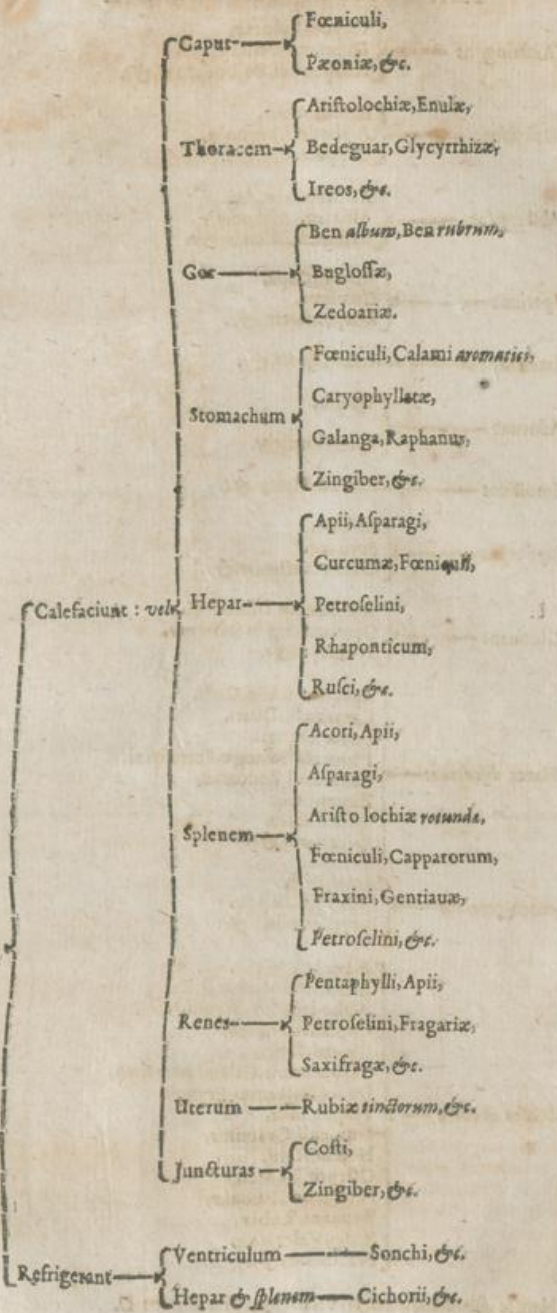 Caput
Fœniculi,
Pæoniæ, &c.
Thoracem
Ariſtolochiæ, Enulæ,
Bedeguar, Glycyrrhizæ,
Ireos, &c.
Cor
Ben album, Ben rubrum,
Bugloſſæ,
Zedoariæ.
Stomachum
Fœniculi, Calami aromatici,
Caryophyllatæ,
Galanga, Raphanus,
Zingiber, &c.
Calefaciunt : vel
Hepar
Apii, Aſparagi,
Curcumæ, Fœniculi,
Petroſelini,
Rhaponticum,
Ruſci, &c.
Splenem
Acori, Apii,
Aſparagi,
Ariſto lochiæ rotundæ,
Fœniculi, Capparorum,
Fraxini, Gentiauæ,
Petroſelini, &c.
Renes
Pentaphylli, Apii,
Petroſelini, Fragariæ,
Saxifragæ, &c.
Uterum
Rubiæ tinctorum, &c.
Juncturas
Coſti,
Zingiber, &c.
Refrigerant
Ventriculum Sonchi, &c.
Hepar & ſplenem Cichorii, &c.